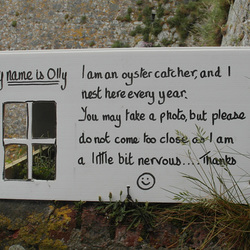 y name is Olly
I am an oyster catcher, and I
nest here every year.
You may take a photo, but please
do not come too close as I am
a little bit nervous.... Thanks